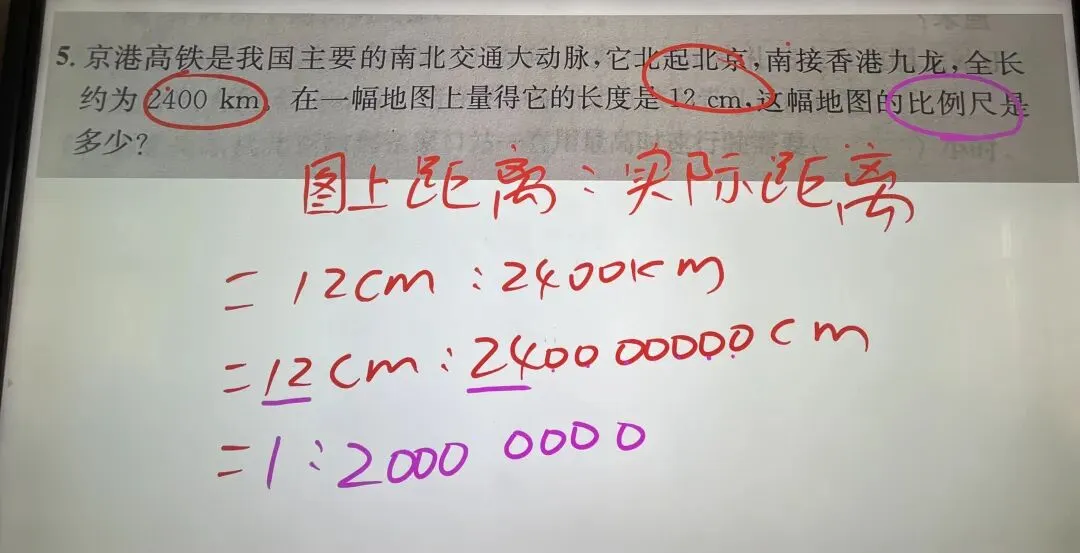 5. 京港高铁是我国主要的南北交通大动脉,它北起北京,南接香港九龙,全长
约为 2400 km。在一幅地图上量得它的长度是 12 cm,这幅地图的比例尺是
多少?
图上距离:实际距离
= 12cm:2400km
= 12cm:240000000cm
= 1:2000 0000